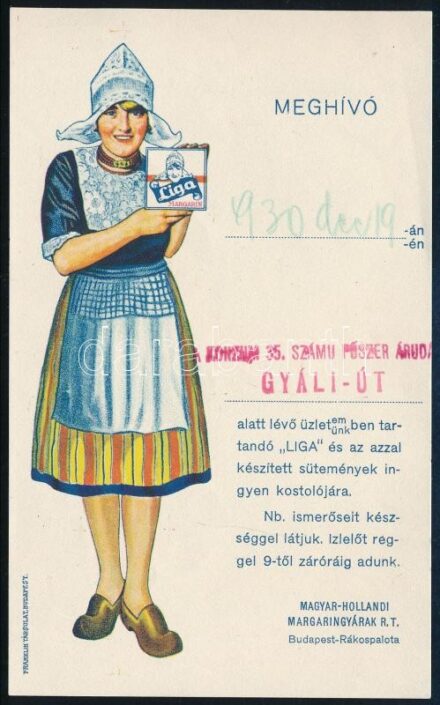 MEGHÍVÓ
930 dec 19 -án
-én
35. SZÁMU FŰSZER ÁRUDA
GYÁLI-ÚT
alatt lévő üzletemünkben tar-
tandó „LIGA" és az azzal
készített sütemények in-
gyen kostolójára.
Nb. ismerőseit kész-
séggel látjuk. Izlelőt reg-
gel 9-től záróráig adunk.
MAGYAR-HOLLANDI
MARGARINGYÁRAK R.T.
Budapest-Rákospalota
Liga
MARGARIN
FRANKLIN TÁRSULAT, BUDAPEST.
darabanth